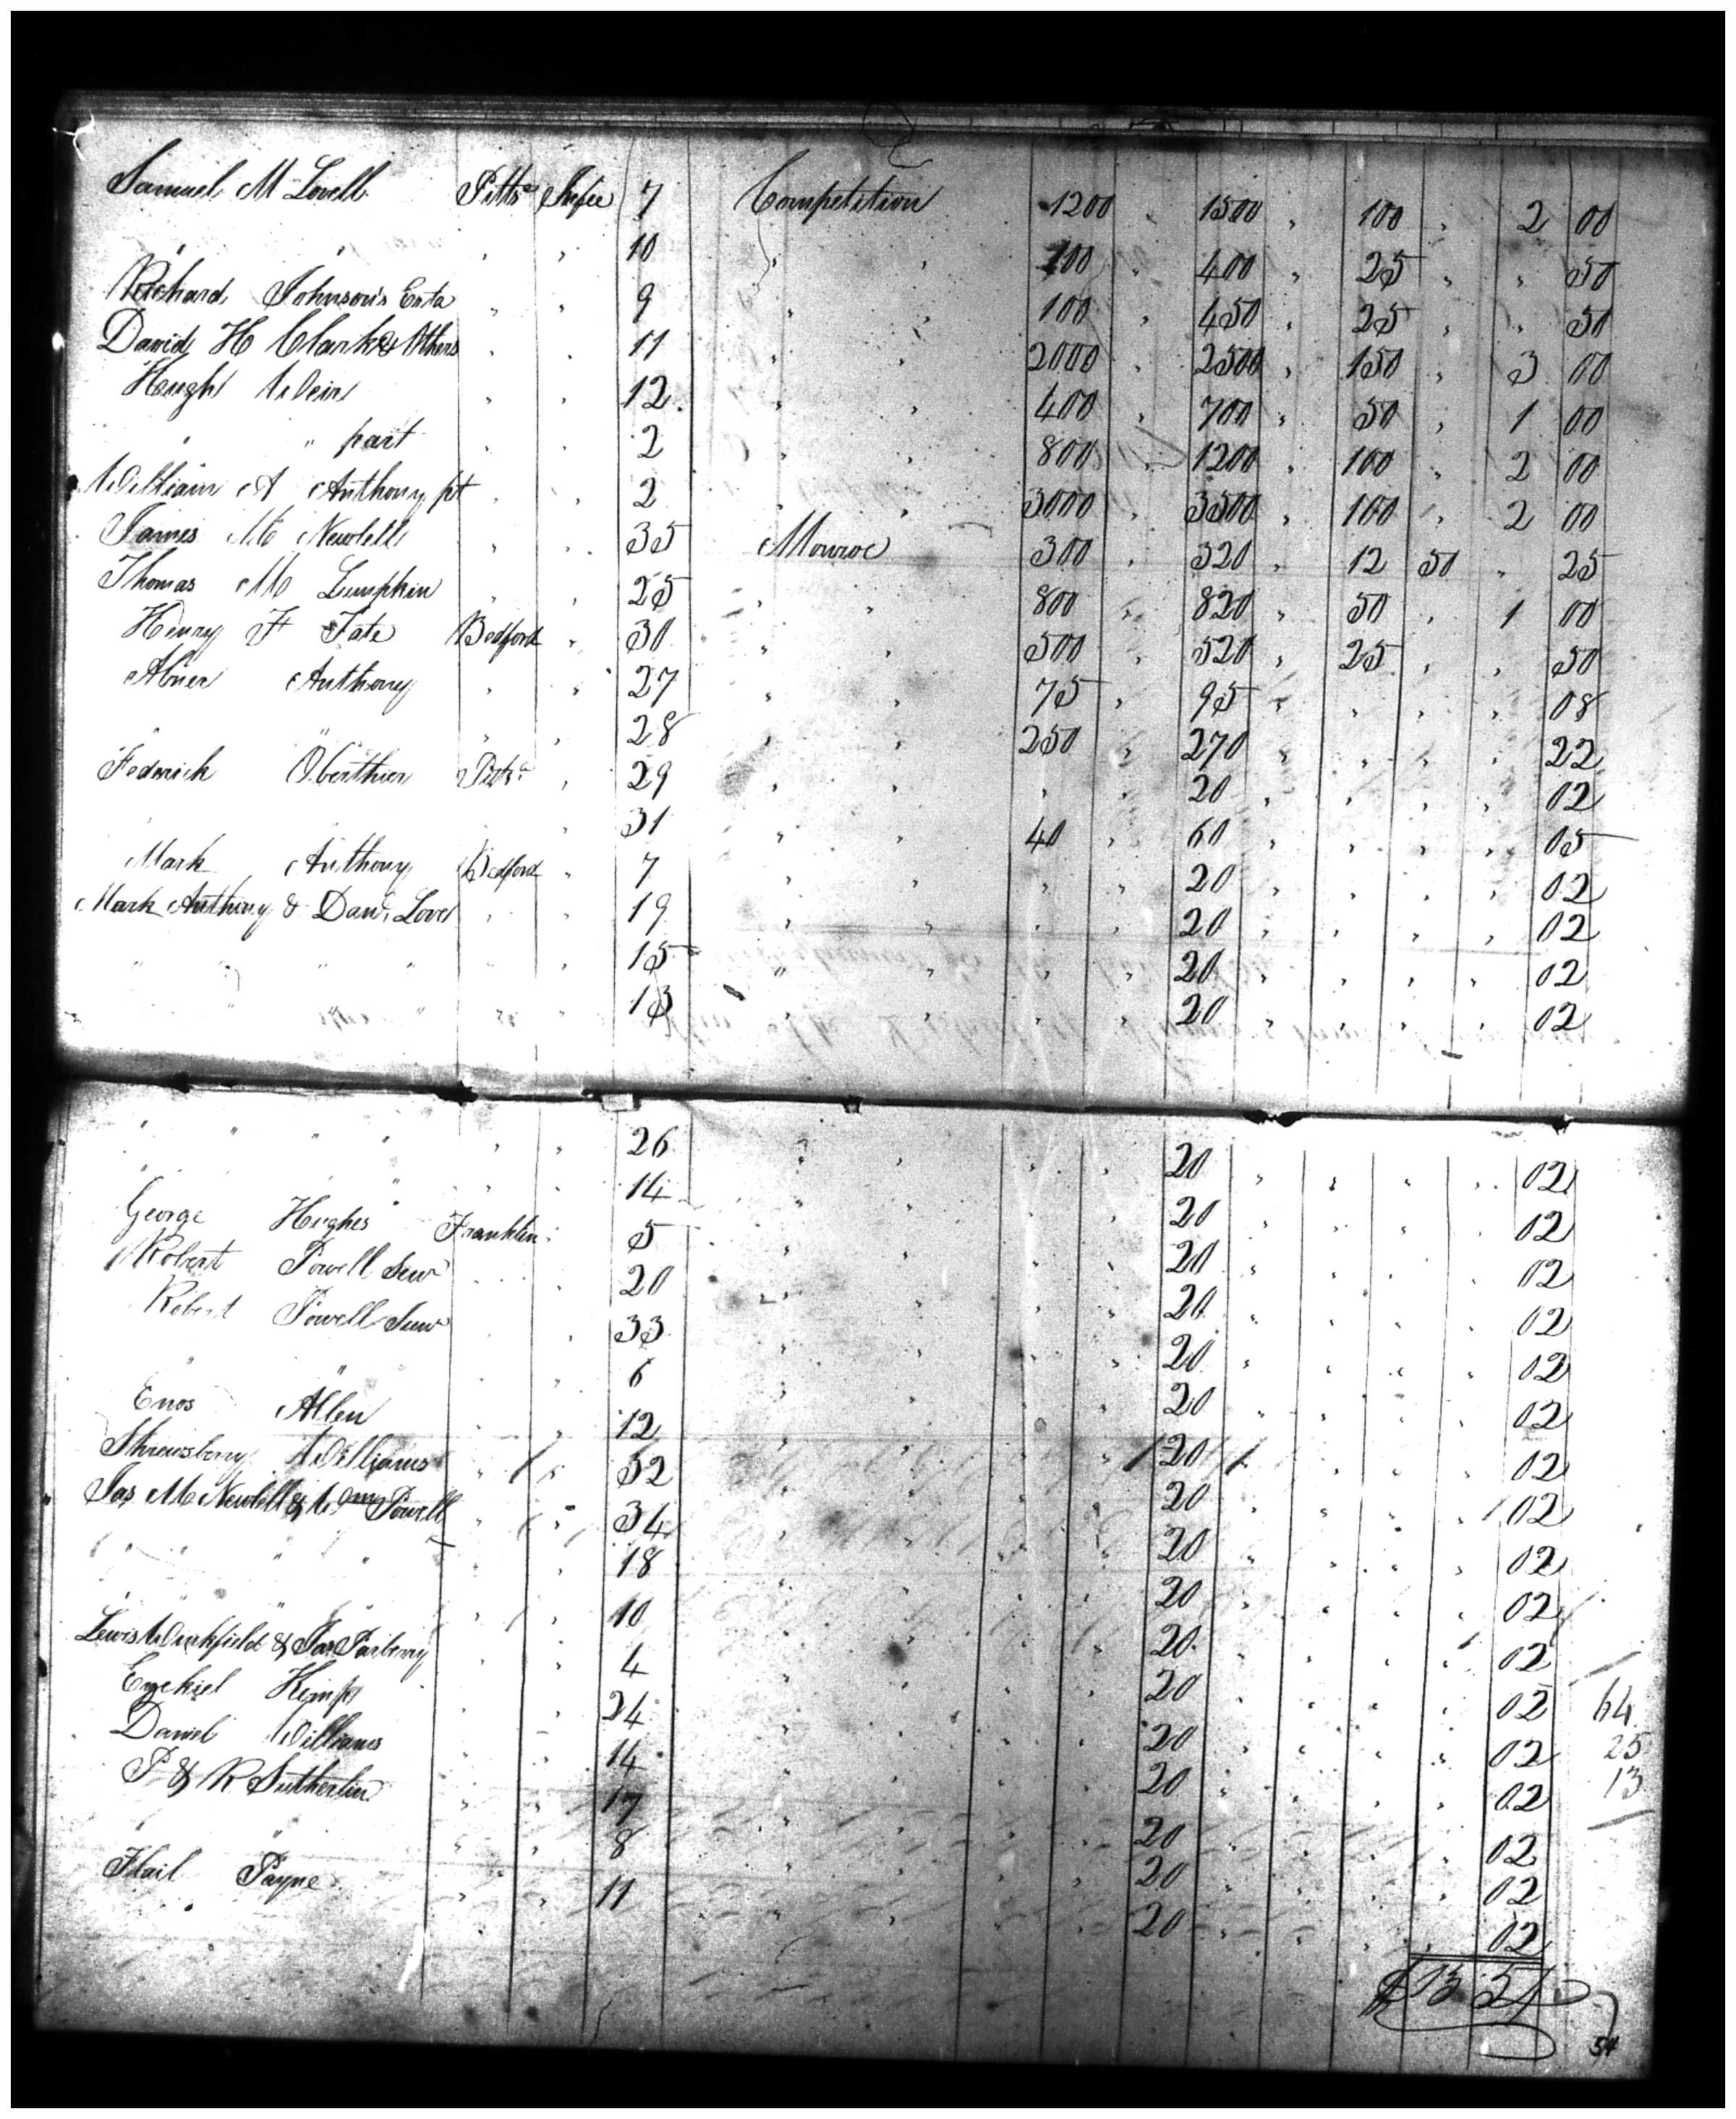 Samuel M Lovell Pitts<sup>a</sup> In fee 7 Competition 1200 " 1500 " 100 " 2 00
" " " " 10 " " 100 " 400 " 25 " " 50
Richard Johnson's Esta " " 9 " " 100 " 450 " 25 " " 50
David H Clark & Others " " 11 " " 2000 " 2500 " 150 " 3 00
Hugh Weir " " 12 " " 400 " 700 " 50 " 1 00
" " part " " 2 " " 800 " 1200 " 100 " 2 00
William A Anthony pt " " 2 " " 3000 " 3500 " 100 " 2 00
James M Newbill " " 35 Monroe 300 " 320 " 12 50 " 25
Thomas M Lumpkin " " 25 " 800 " 820 " 50 " 1 00
Henry F Tate Bedford " 30 " 500 " 520 " 25 " " 50
Abner Anthony " " 27 " " 75 " 95 " " " " 08
" " " " 28 " " 250 " 270 " " " " 22
Federick Oberthier Pitts<sup>a</sup> " 29 " " " " 20 " " " " 02
" " 31 " " 40 " 60 " " " " 05
Mark Anthony Bedford " 7 " " " " 20 " " " " 02
Mark Anthony & Dan<sup>l</sup> Lovel " " 19 " " " " 20 " " " " 02
" " " " " " 15 " " " " 20 " " " " 02
" " " " " 13 " " " " 20 " " " " 02
" " " " " " 26 " " " " 20 " " " " 02
" " " " 14 " " " " 20 " " " " 02
George Hughes Franklin " 5 " " " " 20 " " " " 02
Robert Powell Sen<sup>r</sup> " " 20 " " " " 20 " " " " 02
Robert Powell Jun<sup>r</sup> " " 33 " " " " 20 " " " " 02
" " " " 6 " " " " 20 " " " " 02
Enos Allen " " 12 " " " " 20 " " " " 02
Shrewsbury Williams " " 32 " " " " 20 " " " " 02
Jas M Newbill & Wm Powell " " 34 " " " " 20 " " " " 02
" " " " " " 18 " " " " 20 " " " " 02
" " " " " 10 " " " " 20 " " " " 02
Lewis & Jas " " 4 " " " " 20 " " " " 02
Ezekiel Kemp " " 24 " " " " 20 " " " " 02 64
Daniel Williams " " 14 " " " " 20 " " " " 02 25
P & R Sutherlin " " 17 " " " " 20 " " " " 02 13
" " " " 8 " " " " 20 " " " " 02
Flail Payne " " 11 " " " " 20 " " " " 02
$13 51
54